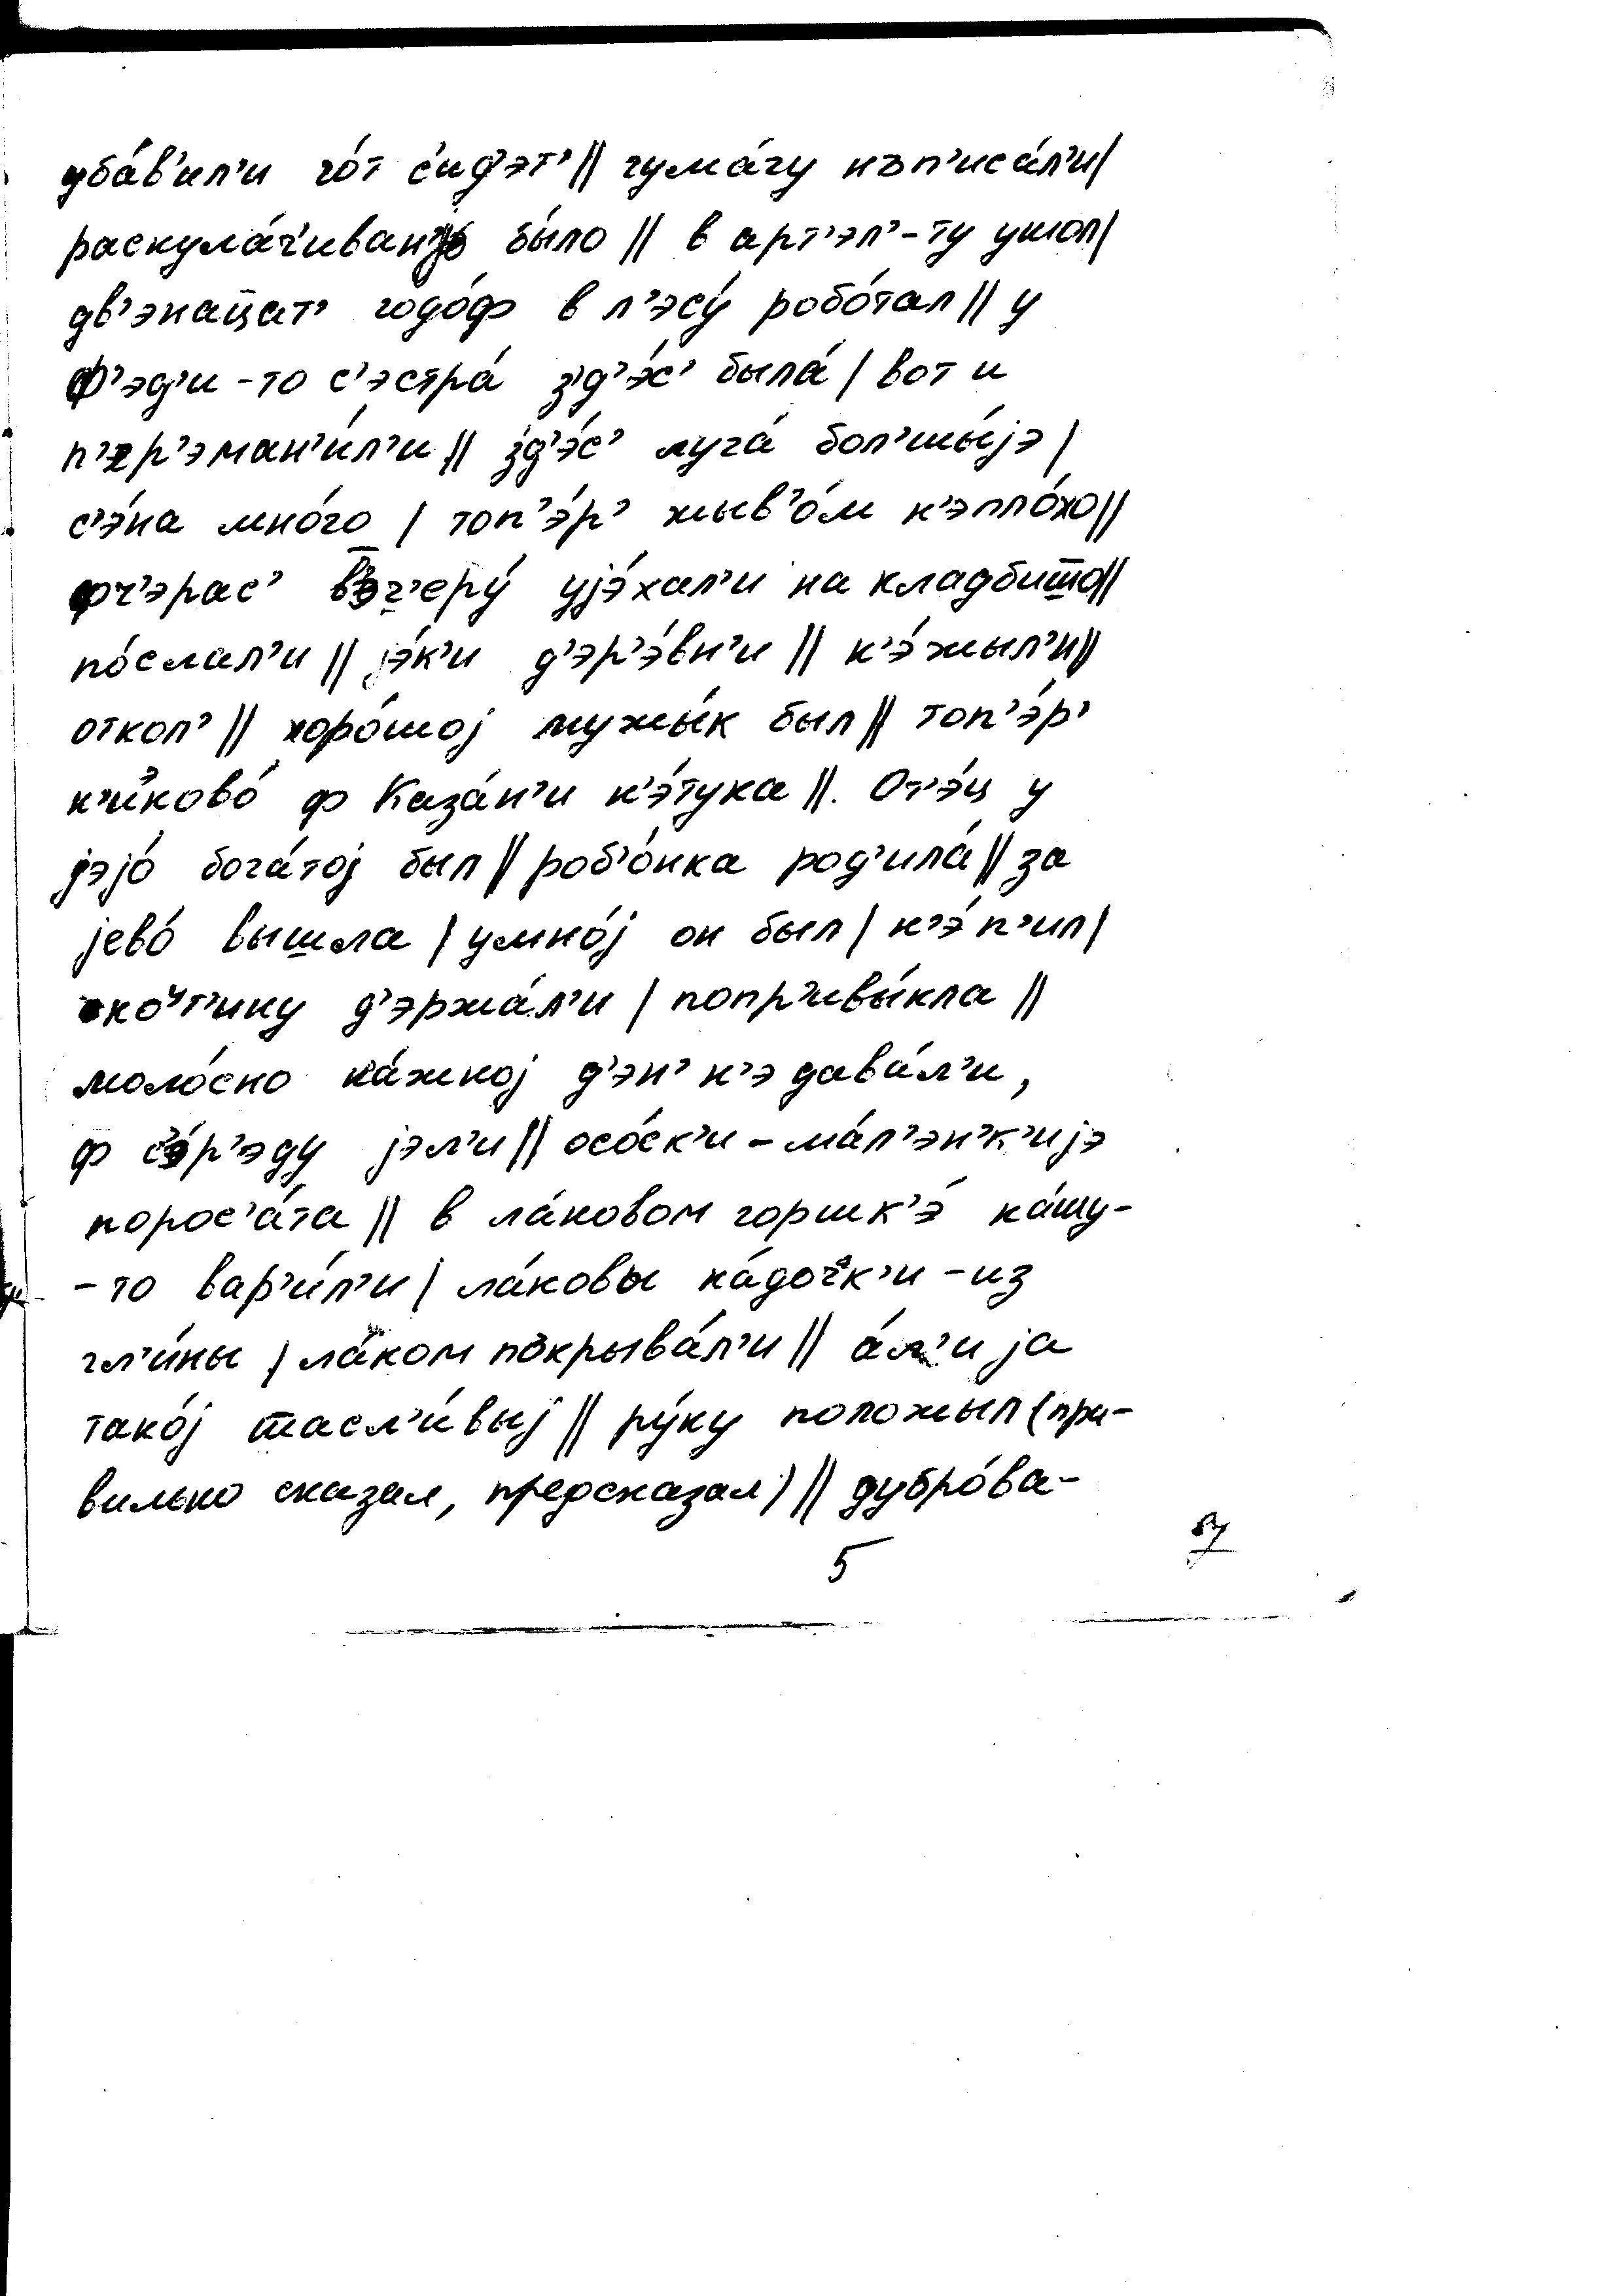 уба́в'ил'и го́т с'ид'эт' || гума́гу нъп'иса́л'и |
раскула́ч'иван'jо бы́ло || в арт'эл'-ту ушол |
дв'энац̄ат' годо́ф в л'эсу́ робо́тал || у
Ф'эд'и-то с'эстра́ з'д'э́с' была́ | вот и
п'эр'эман'и́л'и || з'д'э́с' луга́ бол'шы́jэ |
с'э́на мно́го | топ'э́р' жыв'о́м н'эпло́хо ||
фч'эрас' в'эч'еру́ уjэ́хал'и на кладбиш̄о ||
по́слал'и || jэ́к'и д'эр'э́вн'и || н'э́жыл'и ||
откол' || хоро́шоj мужы́к был || топ'э́р'
н'и́ково́ ф Каза́н'и н'э́тука ||. От'э́ц у
jэjо́ бога́тоj был || роб'о́нка род'ила́ || за
jево́ вышла | умно́j он был | н'э́ п'ил |
ско́т'ину д'эржа́л'и | попр'ивы́кла ||
моло́сно ка́жноj д'эн' н'э дава́л'и,
ф с'э́р'эду jэл'и || осо́ск'и - ма́л'эн'к'иjэ
порос'а́та || в ла́ковом горшк'э́ ка́шу-
-то вар'и́л'и | ла́ковы ка́доч'к'и - из
гл'и́ны | ла́ком покрыва́л'и || а́л'и jа
тако́j ш̄асл'и́выj || ру́ку положыл (пра-
вильно сказал, предсказал) || дубро́ва-
5